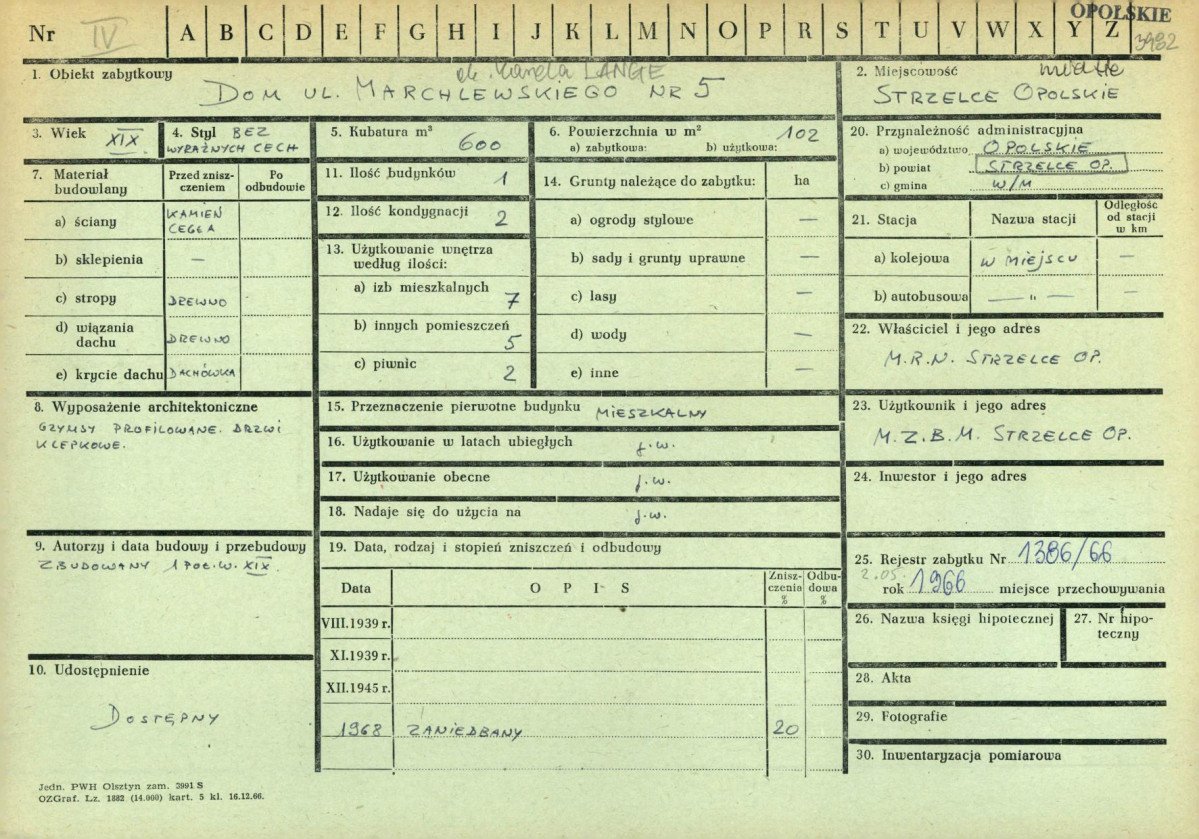 OPOLSKIE
Nr IV A B C D E F G H I J K L M N O P R S T U V W X Y Z 3982
1. Obiekt zabytkowy
ob. Karola LANGE
DOM UL. MARCHLEWSKIEGO NR 5
2. Miejscowość
miasto
STRZELCE OPOLSKIE
3. Wiek XIX
4. Styl BEZ
WYRAŹNYCH CECH
5. Kubatura m³
600
6. Powierzchnia w m² 102
a) zabytkowa: b) użytkowa:
20. Przynależność administracyjna
a) województwo OPOLSKIE
b) powiat STRZELCE OP.
c) gmina W/M
7. Materiał
budowlany
Przed znisz-
czeniem
Po
odbudowie
a) ściany KAMIEŃ
CEGŁA
b) sklepienia —
c) stropy DREWNO
d) wiązania
dachu DREWNO
e) krycie dachu DACHÓWKA
11. Ilość budynków 1
12. Ilość kondygnacji 2
13. Użytkowanie wnętrza
według ilości:
a) izb mieszkalnych
7
b) innych pomieszczeń
5
c) piwnic
2
14. Grunty należące do zabytku: ha
a) ogrody stylowe —
b) sady i grunty uprawne —
c) lasy —
d) wody —
e) inne —
21. Stacja Nazwa stacji
Odległość
od stacji
w km
a) kolejowa W MIEJSCU —
b) autobusowa — " — —
22. Właściciel i jego adres
M.R.N. STRZELCE OP.
8. Wyposażenie architektoniczne
GZYMSY PROFILOWANE. DRZWI
KLEPKOWE.
15. Przeznaczenie pierwotne budynku MIESZKALNY
16. Użytkowanie w latach ubiegłych j.w.
17. Użytkowanie obecne j.w.
18. Nadaje się do użycia na j.w.
23. Użytkownik i jego adres
M.Z.B.M. STRZELCE OP.
24. Inwestor i jego adres
9. Autorzy i data budowy i przebudowy
ZBUDOWANY 1 POŁ. W. XIX.
19. Data, rodzaj i stopień zniszczeń i odbudowy
Data O P I S
Znisz-
czenia
%
Odbu-
dowa
%
VIII.1939 r.
XI.1939 r.
XII.1945 r.
1968 ZANIEDBANY 20
25. Rejestr zabytku Nr 1386/66
2.05.
rok 1966 miejsce przechowywania
26. Nazwa księgi hipotecznej
27. Nr hipo-
teczny
10. Udostępnienie
DOSTĘPNY
28. Akta
29. Fotografie
30. Inwentaryzacja pomiarowa
Jedn. PWH Olsztyn zam. 3991 S
OZGraf. Lz. 1882 (14.000) kart. 5 kl. 16.12.66.